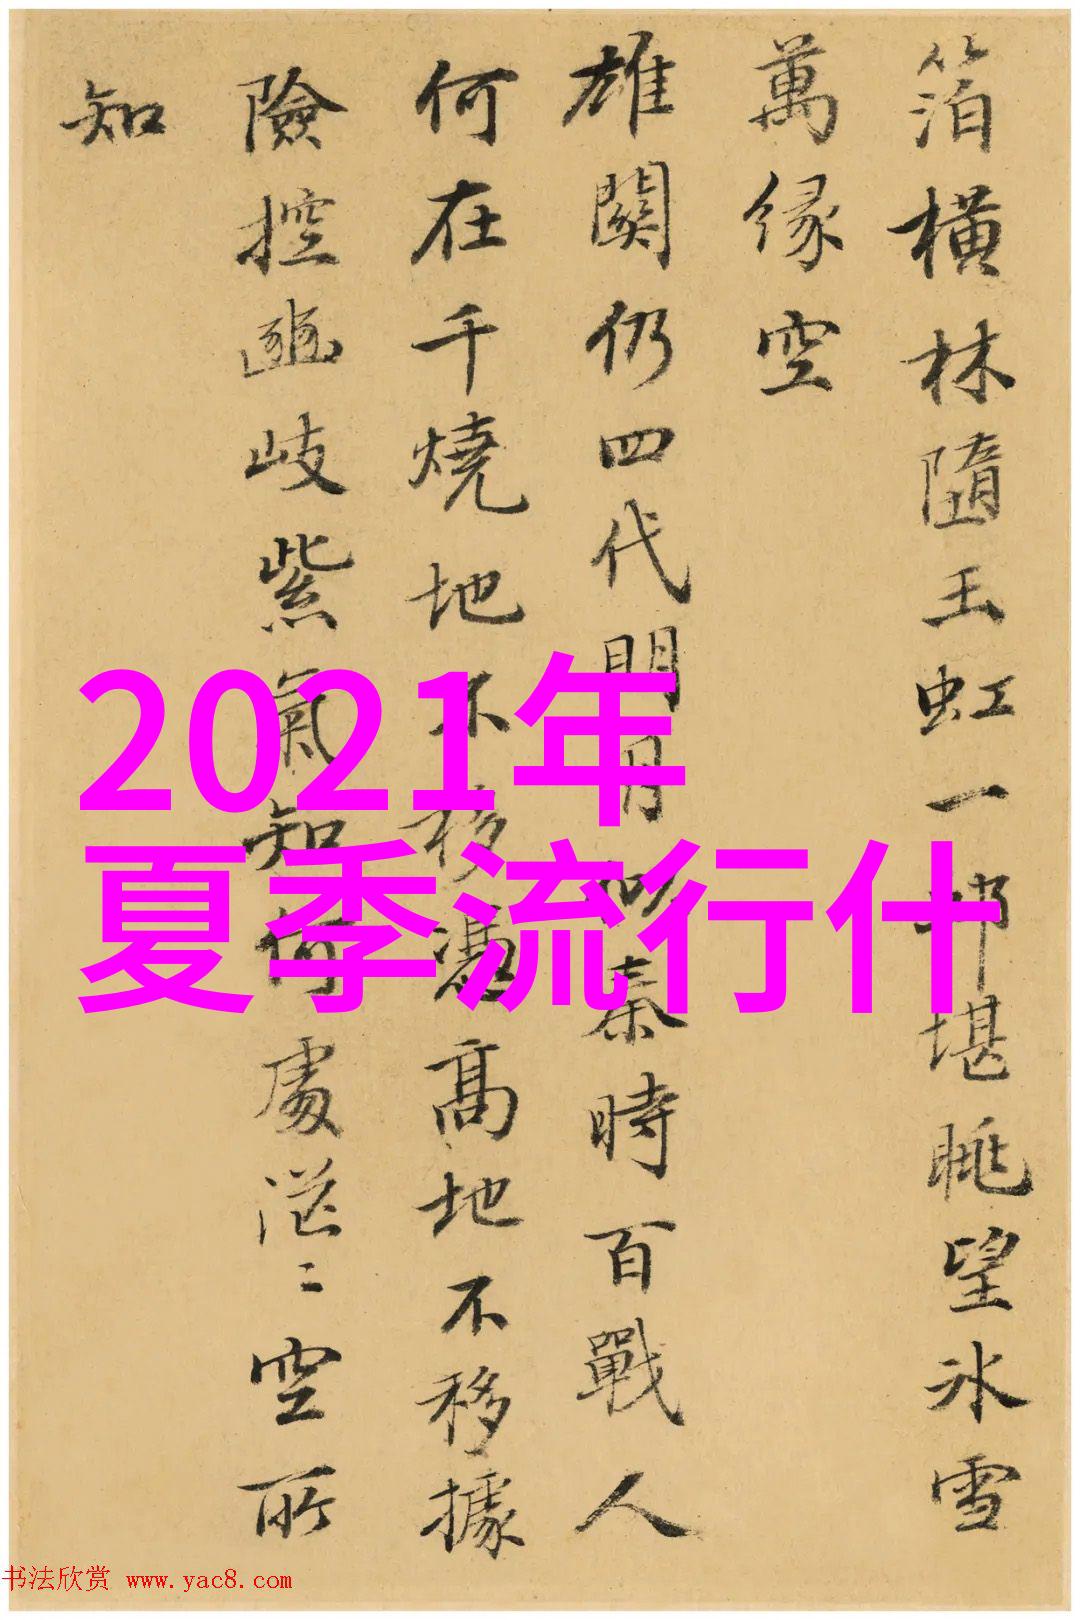 箔橫林隨玉虹一邨堪眺望冰雪
萬緣空
雄關仍四代明月似秦時百戰人
何在千燒地不移憑高地不移據
險控豳岐紫氣知何處茫〻空所
知
2021年
夏季流行什
书法欣赏 www.yac8.com